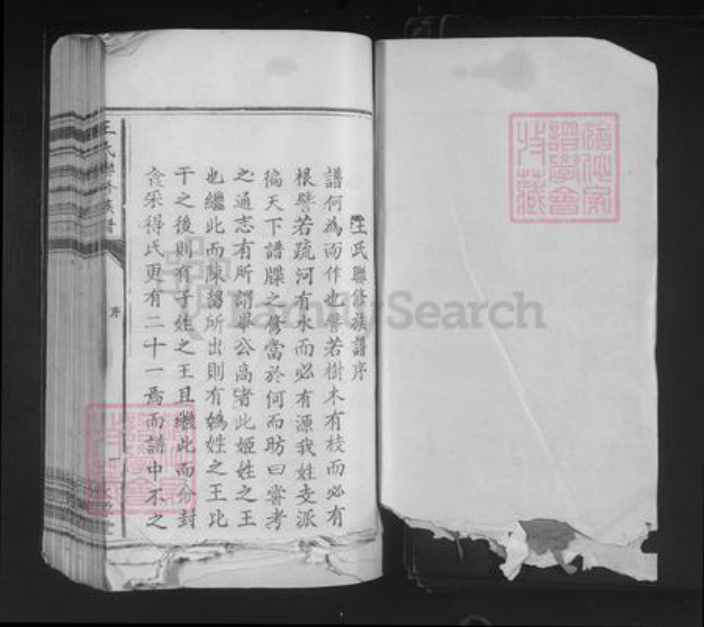 王氏聯修族譜序
譜何為而作也譬若樹木有枝而必有
根譬若疏河有水而必有源我姓支派
徧天下譜牒之修當於何而昉曰嘗考
之通志有所謂畢公高者此姬姓之王
也繼此而陳胡所出則有媯姓之王比
干之後則有子姓之王且繼此而分封
食采得氏更有二十一焉而譜中不之
王氏聯修族譜
序
FamilySearch